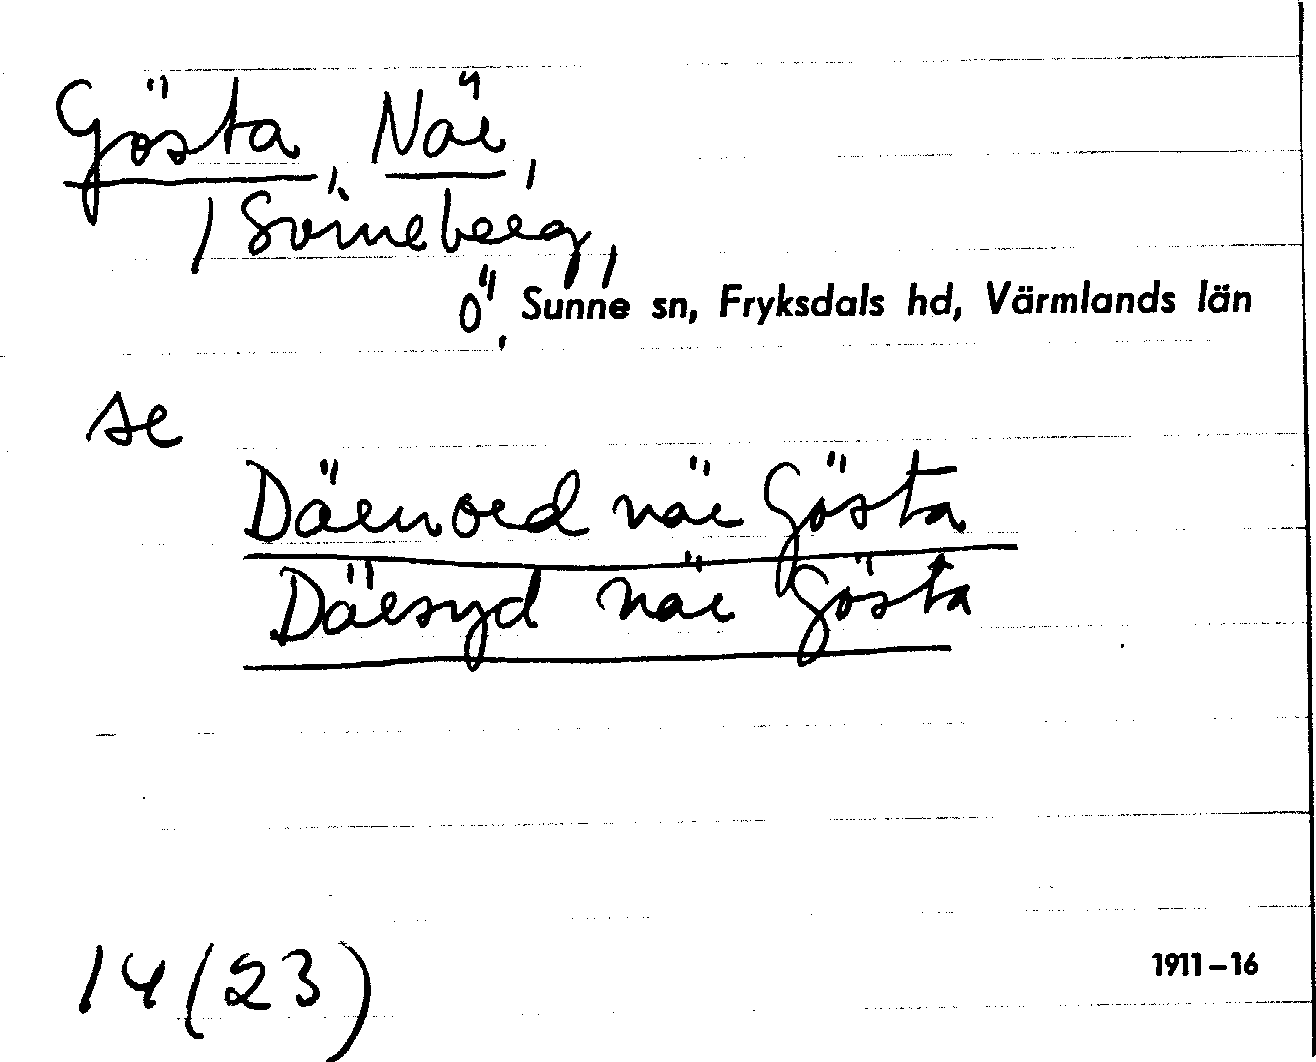 Gösta, När,
, Svineberg,
Ö. Sunne sn, Fryksdals hd, Värmlands län
se
Därnord när Gösta
Därsyd när Gösta
14 (23)
1911–16